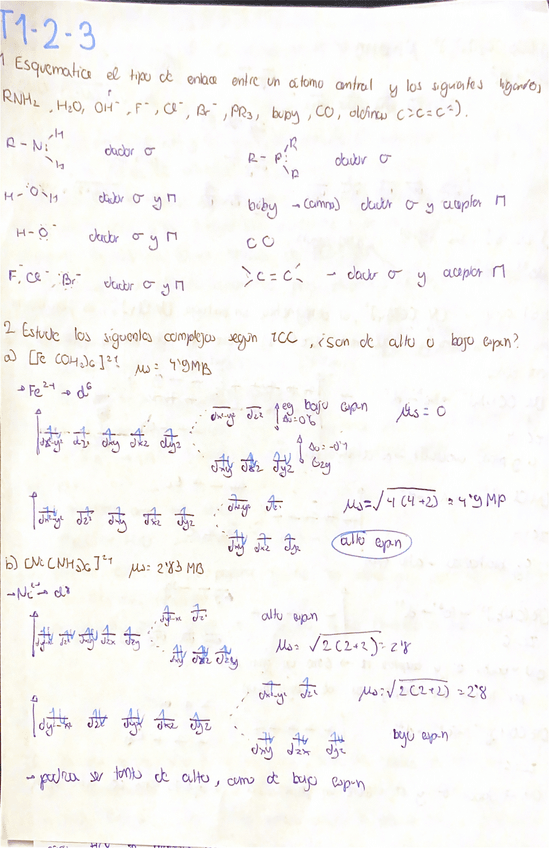 T1-2-3
1 Esquematice el tipo de enlace entre un átomo central y los siguientes ligandos,
RNH₂, H₂O, OH⁻, F⁻, Cl⁻, Br⁻, PR₃, bipy, CO, olefinas C=C=C=).
R-N: H H dador σ
R-P: R R dador σ
H-O H dador σ y π
bipy → (amina) dador σ y aceptor π
H-O⁻ dador σ y π
CO
F⁻, Cl⁻, Br⁻ dador σ y π
C=C - dador σ y aceptor π
2. Estudie los siguientes complejos según TCC, ¿son de alto o bajo espín?
a) [Fe(OH₂)₆]²⁺ μs = 4'9MB
→ Fe²⁺ → d⁶
dx²-y² dz² eg bajo espín μs = 0
Δo = 0'6
dx²-y² dz² dxy dxz dyz
Δo = -0'4
dxy dxz dyz t2g
dx²-y² dz² dxy dxz dyz
dx²-y² dz²
μs = √4(4+2) = 4'9 MB
dxy dxz dyz
alto espín
b) [Ni(NH₃)₆]²⁺ μs = 2'83 MB
→ Ni²⁺ → d⁸
alto espín
μs = √2(2+2) = 2'8
dx²-y² dz² μs = √2(2+2) = 2'8
dxy dzx dyz bajo espín
→ podría ser tanto de alto, como de bajo espín